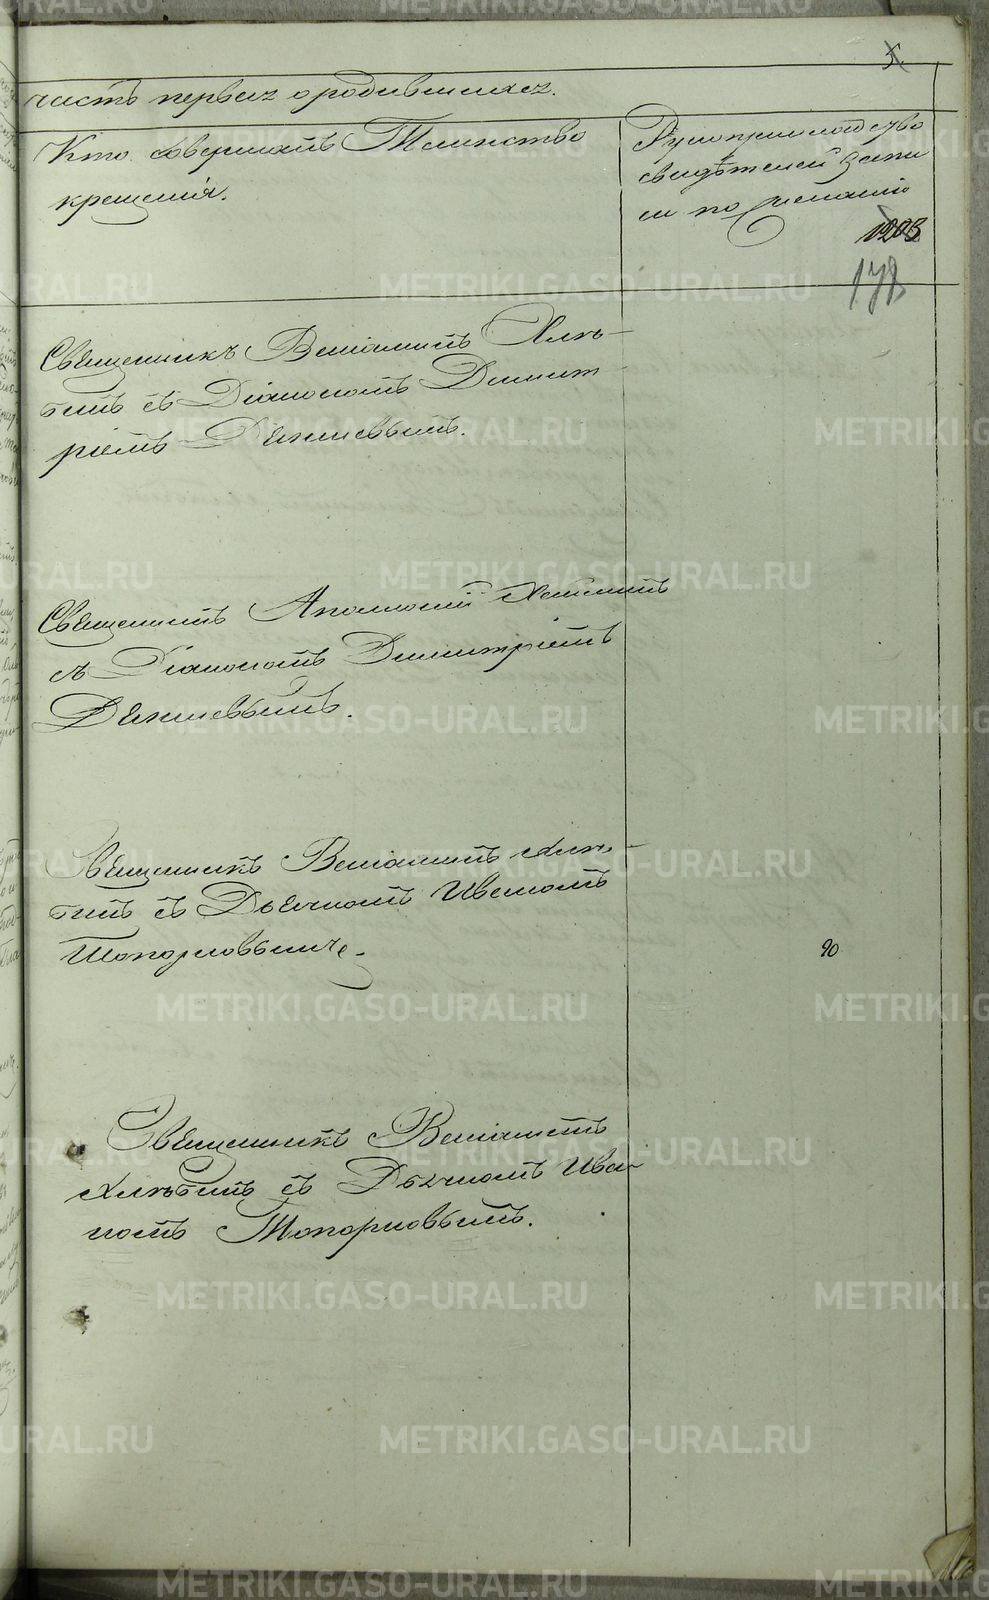 5
часть первая о родившихся.
Кто совершалъ Таинство
крещенія.
Рукоприкладство
свидѣтелей запи
си по желанію
1203
178
Священникъ Веніаминъ Хлѣ-
бинъ съ Діакономъ Димит-
ріемъ Дягилевымъ.
Священникъ Аполлоній
съ Діакономъ Димитріемъ
Дягилевымъ.
Священникъ Веніаминъ Хлѣ-
бинъ съ Дьячкомъ Иваномъ
Топорковымъ.
90
Священникъ Веніаминъ
Хлѣбинъ съ Дьячкомъ Ива-
номъ Топорковымъ.
METRIKI.GASO-URAL.RU